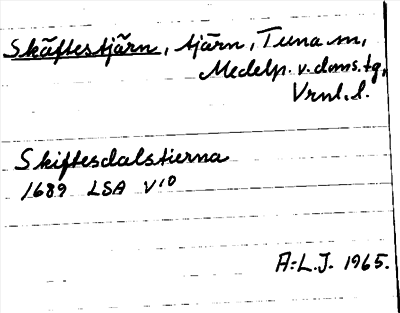 Skäftestjärn, tjärn, Tuna sn,
Medelp. v. doms. tg,
Vrnl. l.
Skiftesdalstierna
1689 LSA V10
A:L.J. 1965.